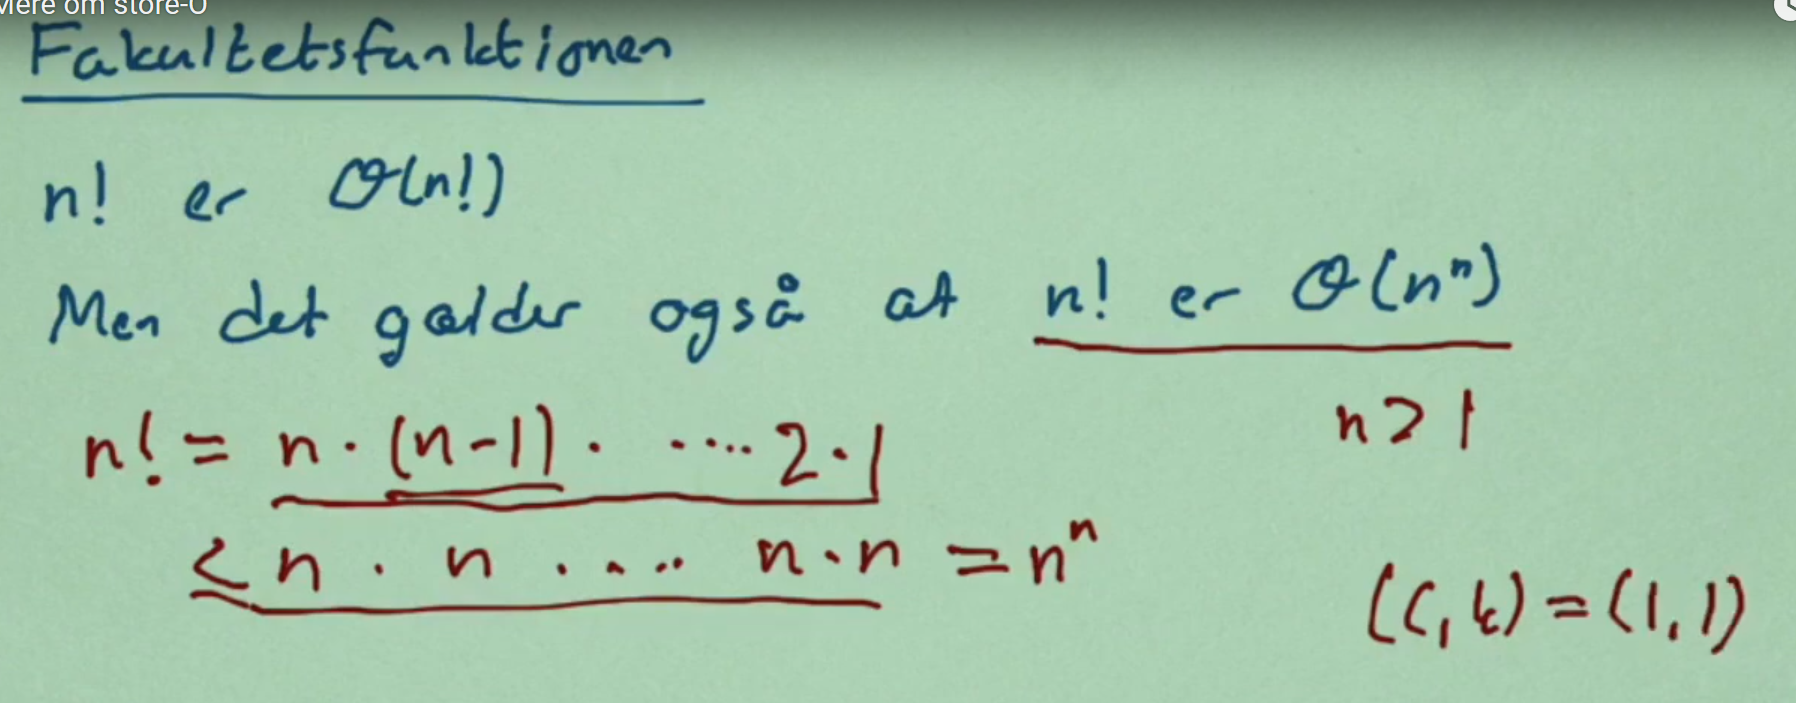 Mere om store-O
Fakultetsfunktionen
n! er O(n!)
Men det gælder også at n! er O(nⁿ)
n! = n · (n-1) · ···· 2 · 1
n > 1
≤ n · n · ... n · n = nⁿ
(C, k) = (1, 1)